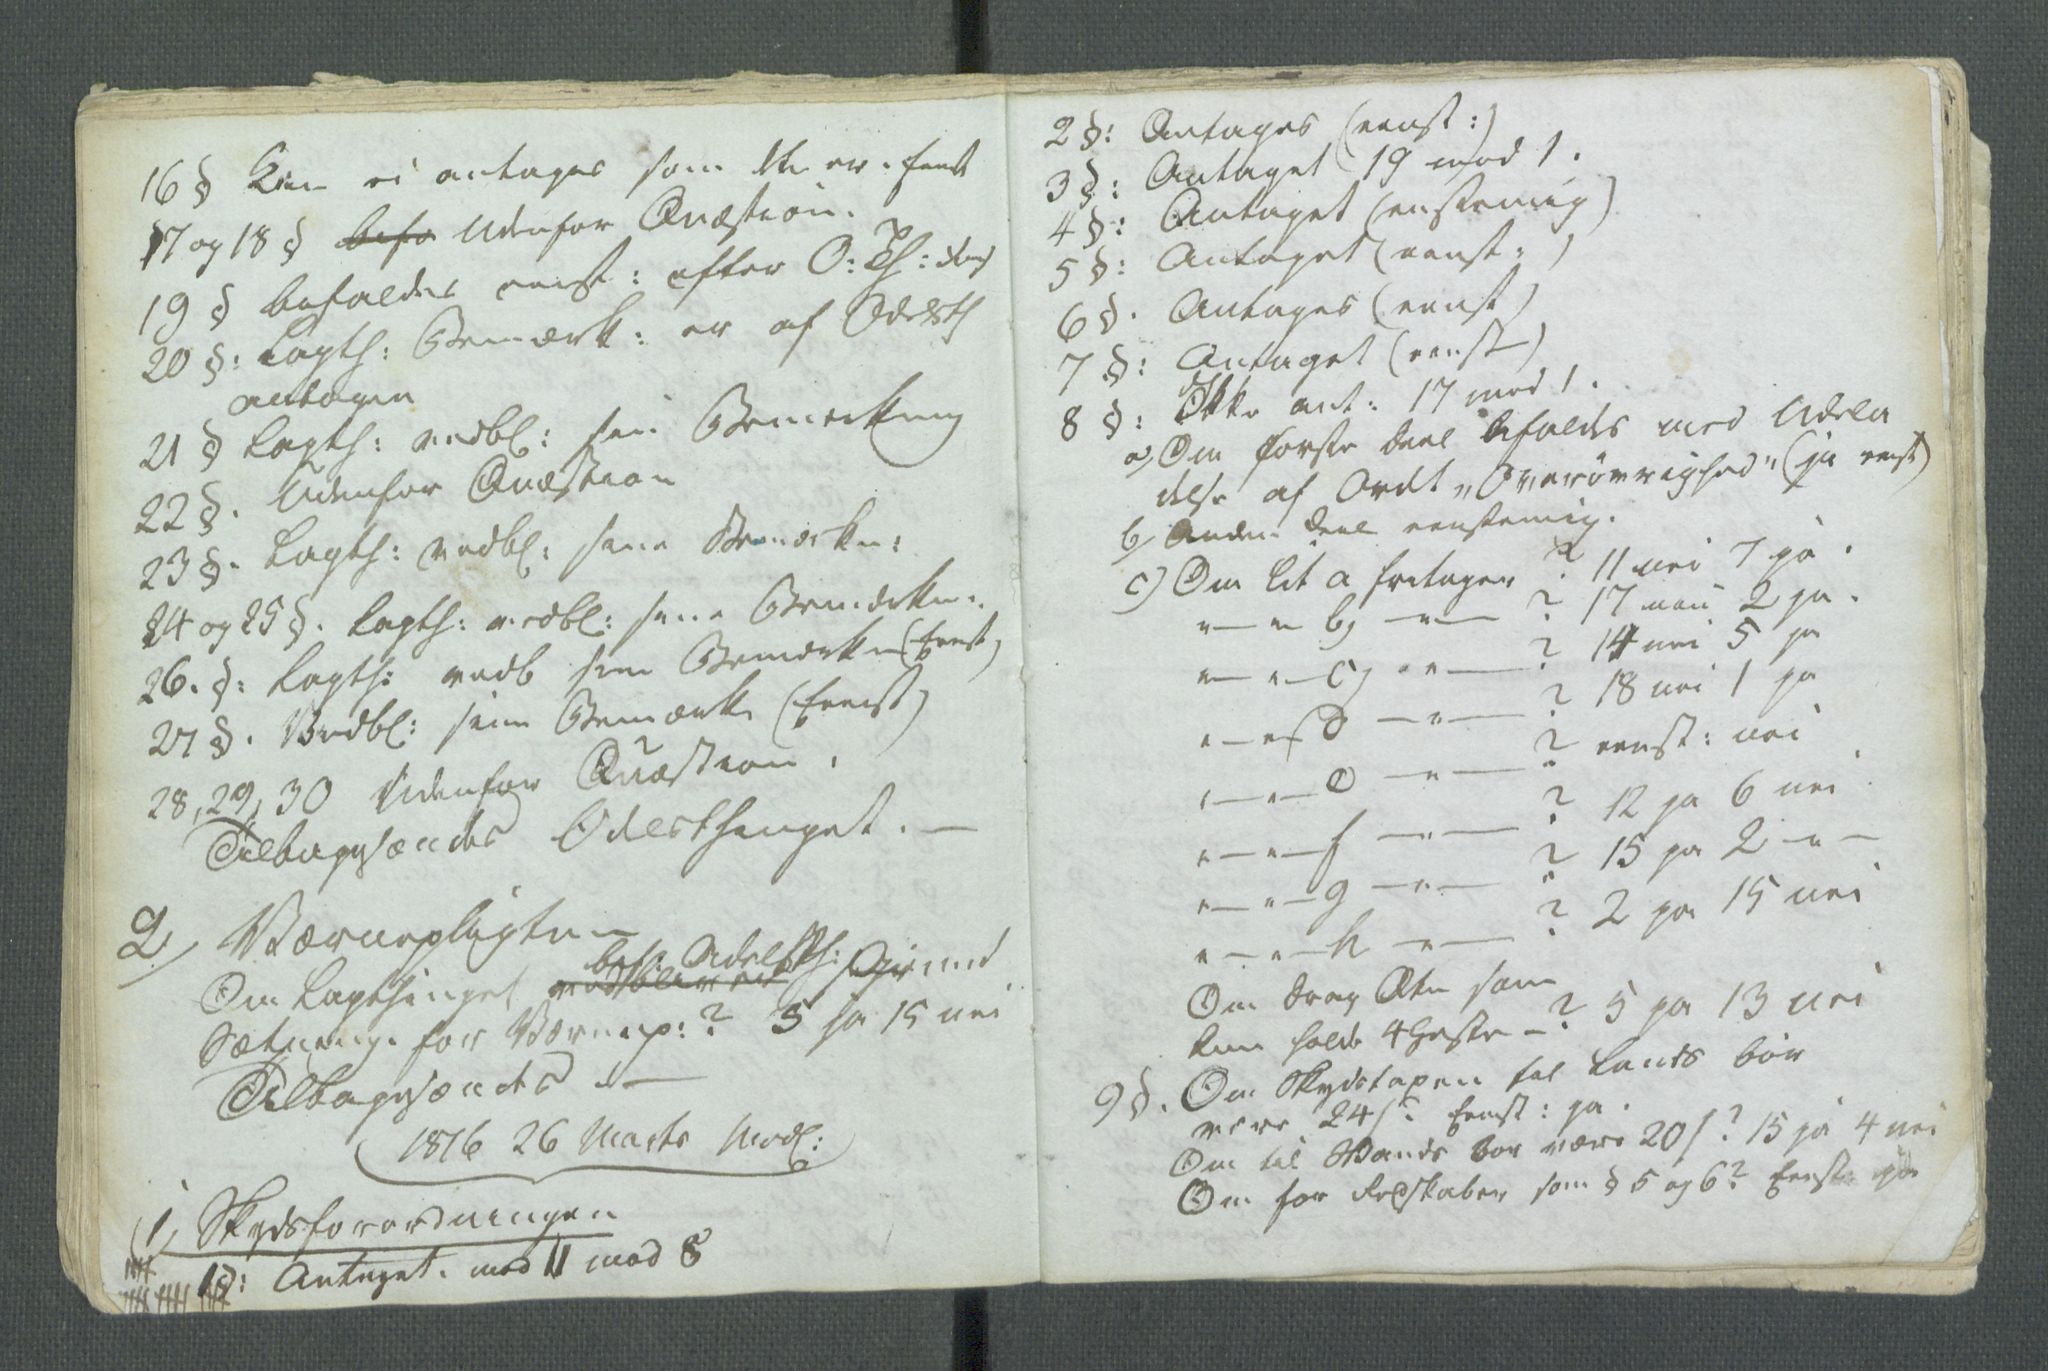 16 § Kan ei antages som den er. Eenst
17 og 18 § befo Udenfor Quæstion.
19 § befaldes eenst: efter O: Th:
20 §: Lagth: Bemærk: er af Odelsth
antagen
21 § Lagth: vedbl: sin Bemerkning
22 §. Udenfor Quæstion
23 §. Lagth: vedbl: sine Bemærkn:
24 og 25 §. Lagth: vedbl: sine Bemærkn:
26. §: Lagth: vedb sine Bemærkn (Eenst)
27 §. Vedbl: sine Bemærk (Eenst)
28, 29, 30 Udenfor Quæstion.
Tilbagesændes Odelsthinget. —
2, Værnepligten
bef: Odelsth:
Om Lagthinget vedbliver sin Grund
Sætning for Værnep:? 5 ja 15 nei
Tilbagesændes —
1816 26 Marts Modl:
1, Skydsforordningen
1 §: Antaget. med 11 mod 8
2 §: Antages (eenst:)
3 §: Antaget 19 mod 1.
4 §: Antaget (enstemig)
5 §: Antaget (eenst:)
6 §. Antages (eenst)
7 §: Antaget (eenst)
8 §: Ikke ant: 17 mod 1.
a, Om første Deel bifaldes med Udela
delse af Ordet "Overøvrighed" (ja eenst)
b, Anden Deel eenstemig.
c) Om Lit a fritages? 11 nei 7 ja.
" — " b, — " — ? 17 nei 2 ja.
" — " — c, " — ? 14 nei 5 ja
" — " — d — " — ? 18 nei 1 ja
" — " — e — " — ? eenst: nei
" — " — f — " — ? 12 ja 6 nei
" — " — g — " — ? 15 ja 2 — " —
" — " — h — " — ? 2 ja 15 nei
Om som
kun holde 4 Heste — ? 5 ja 13 nei
9 §. Om Skydstaxen til Lands bør
være 24 s? Eenst: ja.
Om til Vands bør være 20 s? 15 ja 4 nei
Om for Redskaber som § 5 og 6? Eenst: ja